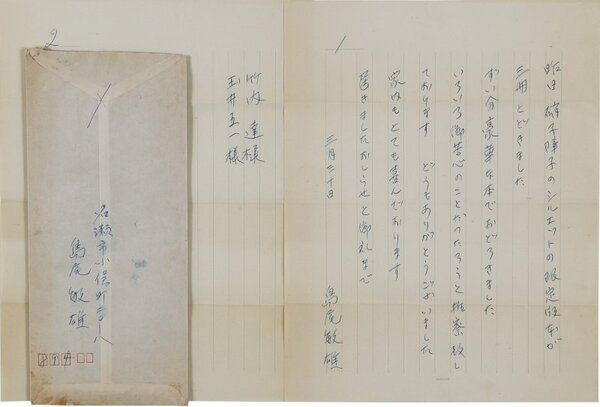 1
昨日 硝子障子のシルエットの限定版本が
三冊とどきました
ずい分豪華な本でおどろきました
いろいろ御苦心のことだったろうと推察致し
ております どうもありがとうございました
家内もとても喜んでおります
届きましたおしらせと御礼まで
三月二十日
島尾敏雄
2
竹内 達様
玉井五一様
名瀬市小俣町
島尾敏雄
894